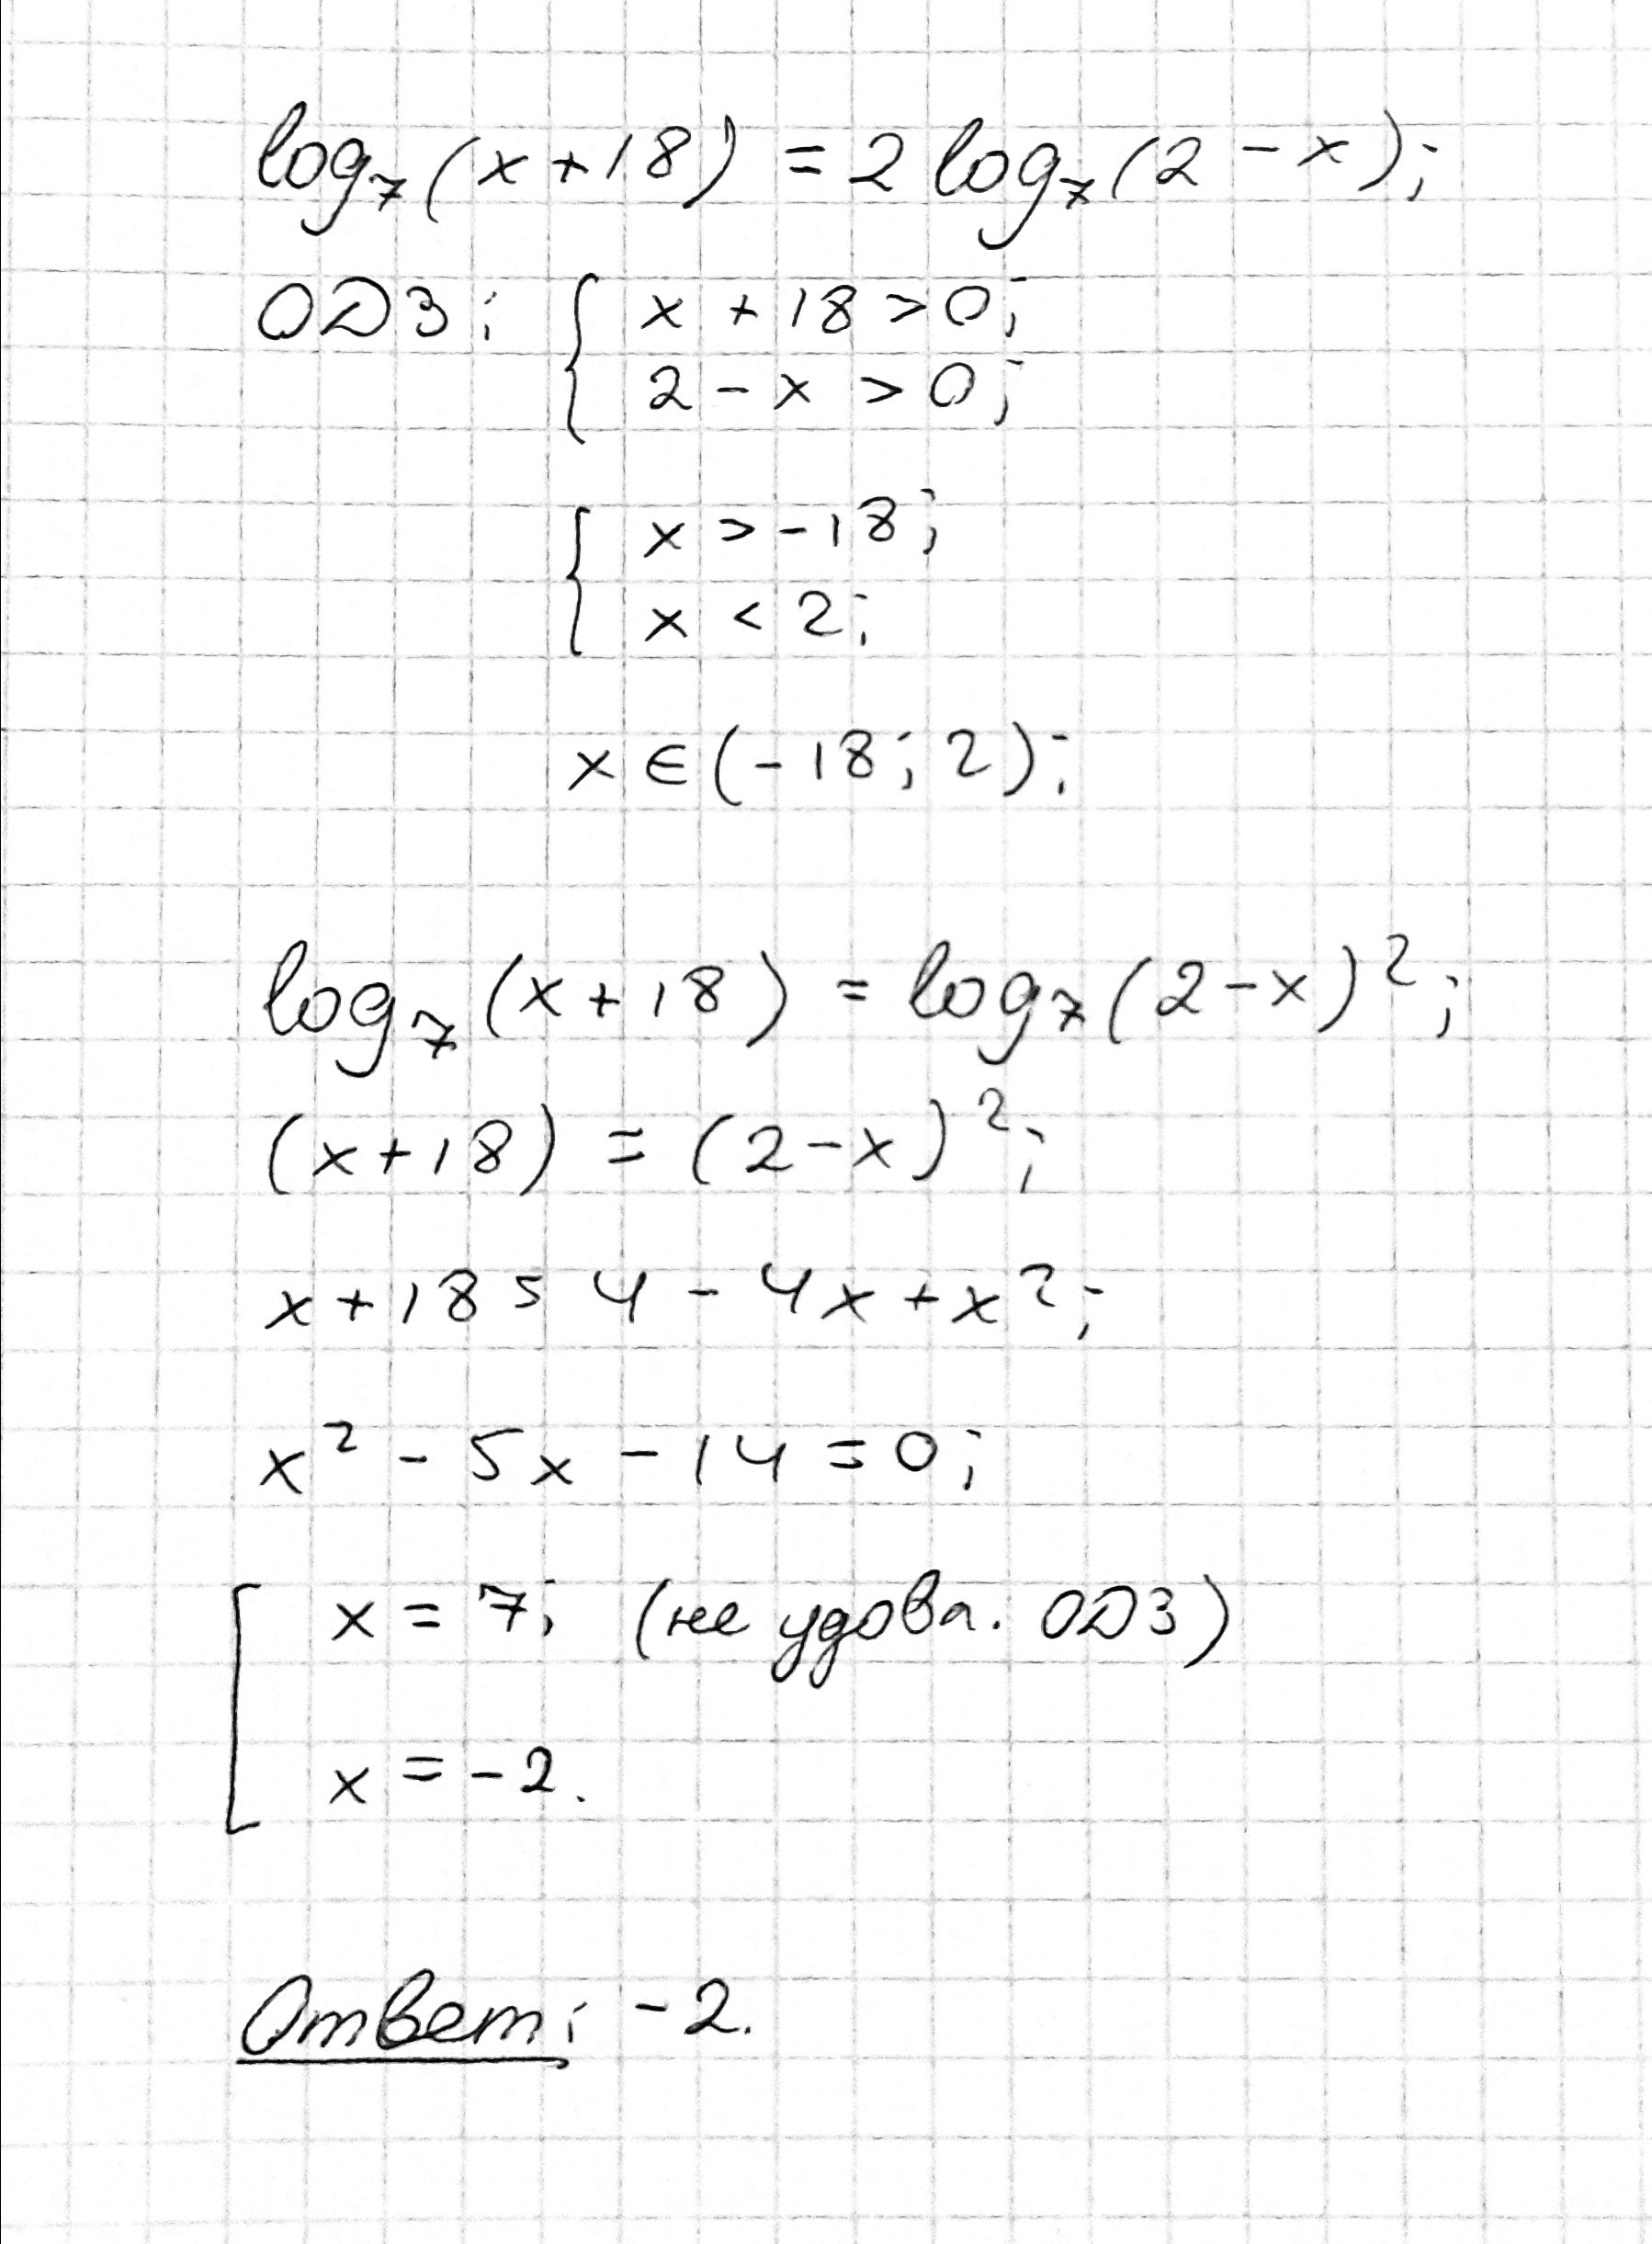 log₇(x+18) = 2 log₇(2-x);
ОДЗ: { x + 18 > 0;
2 - x > 0;
{ x > -18;
x < 2;
x ∈ (-18; 2);
log₇(x+18) = log₇(2-x)²;
(x+18) = (2-x)²;
x+18 = 4 - 4x + x²;
x² - 5x - 14 = 0;
[ x = 7; (не удовл. ОДЗ)
x = -2.
Ответ: -2.